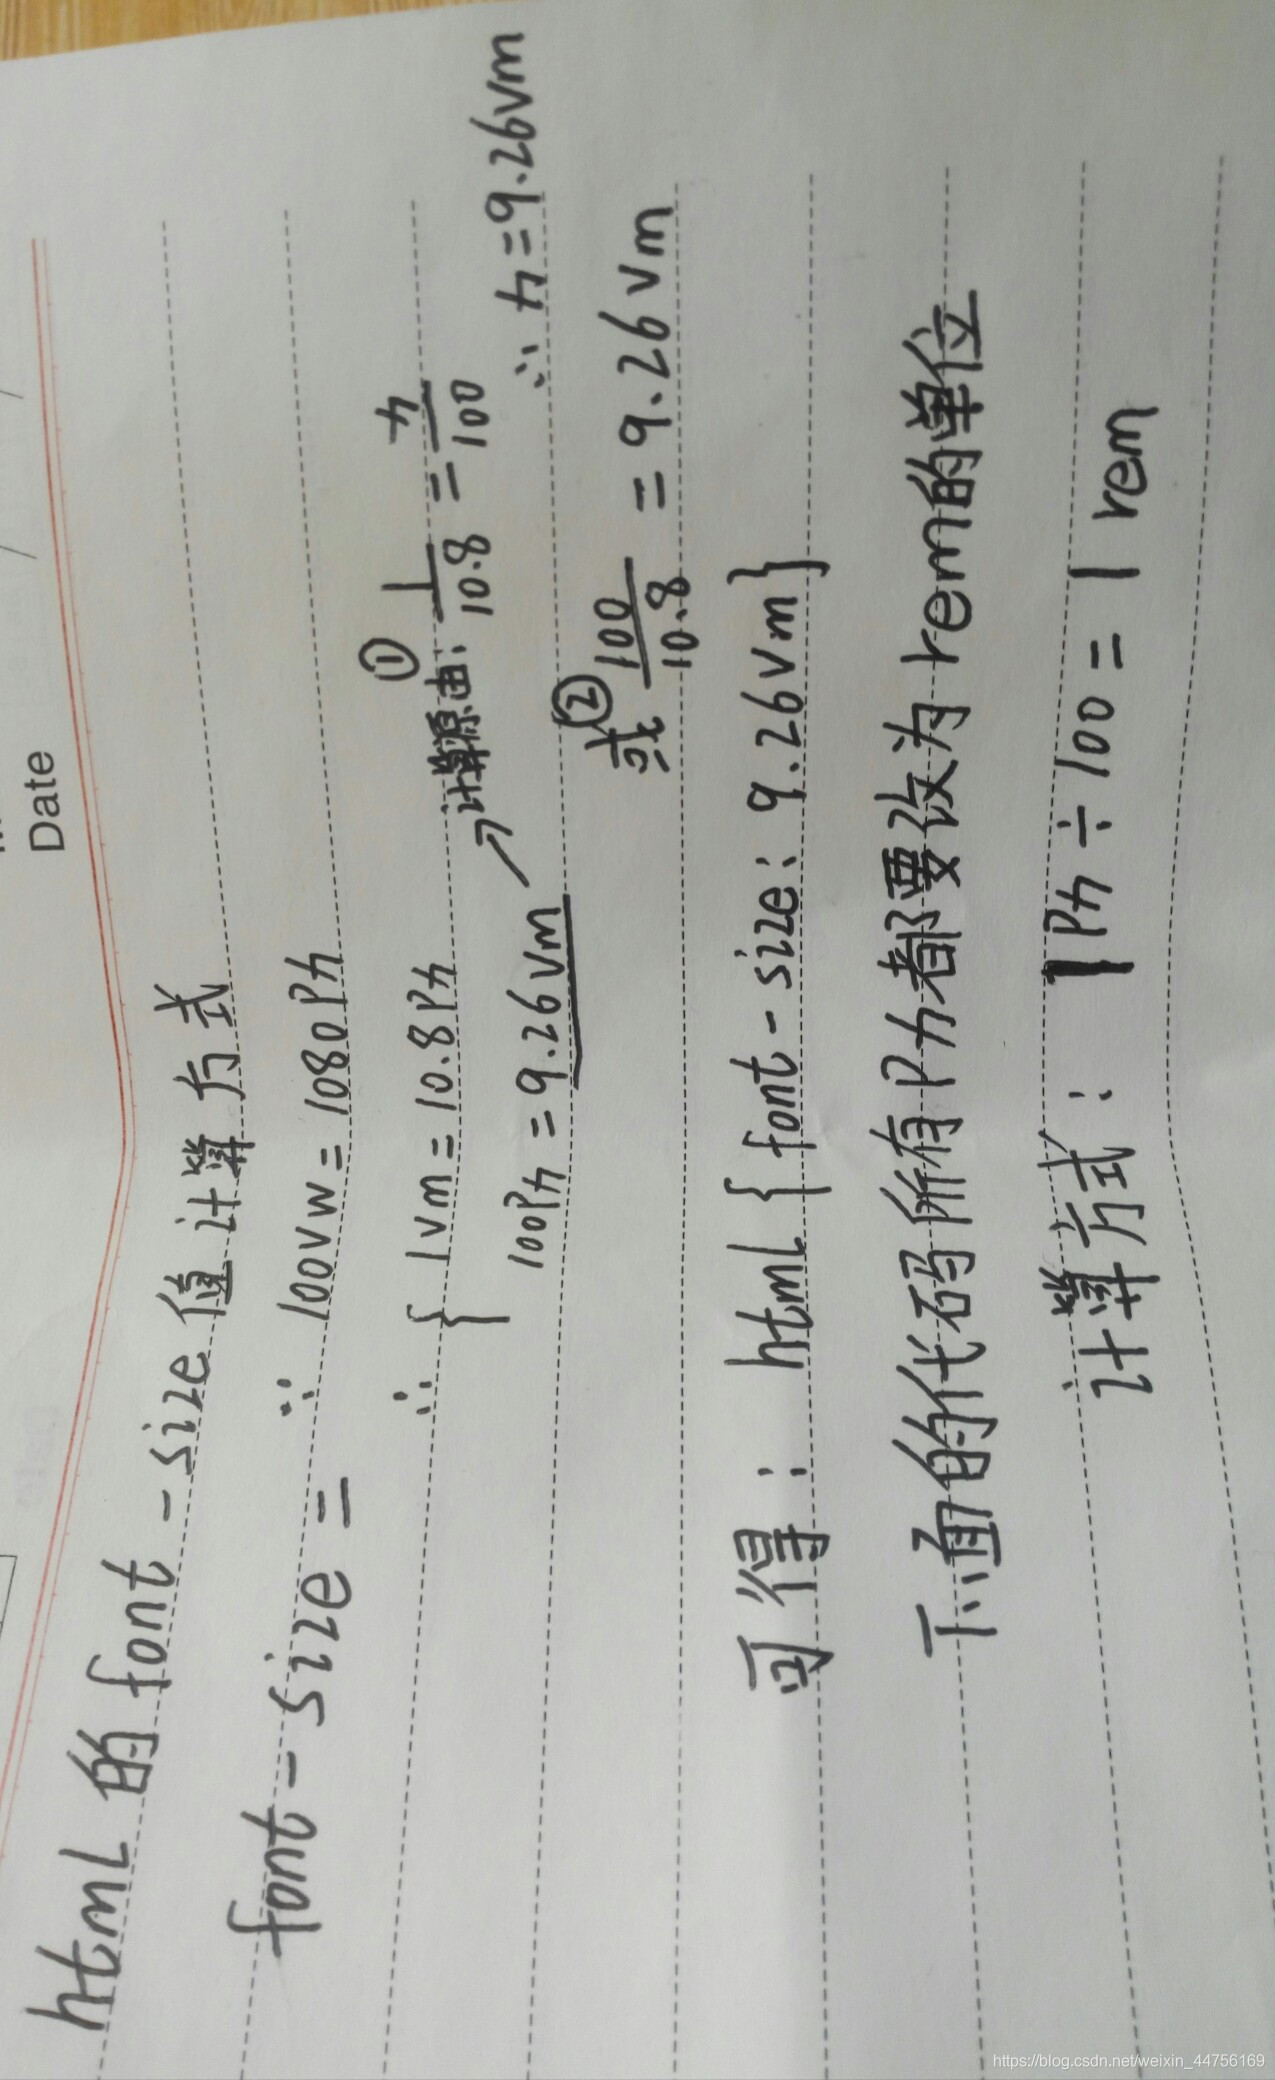 Date
html 的 font-size 值计算方式
font-size = ∵ 100vw = 1080Px
∴ { 1vm = 10.8Px
100Px = 9.26vm → 计算源由: ① 1/10.8 = x/100 ∴ x = 9.26vm
或② 100/10.8 = 9.26vm
可得: html {font-size: 9.26vm}
下面的代码所有Px都要改为rem的单位
计算方式: 1Px ÷ 100 = 1rem
https://blog.csdn.net/weixin_44756169